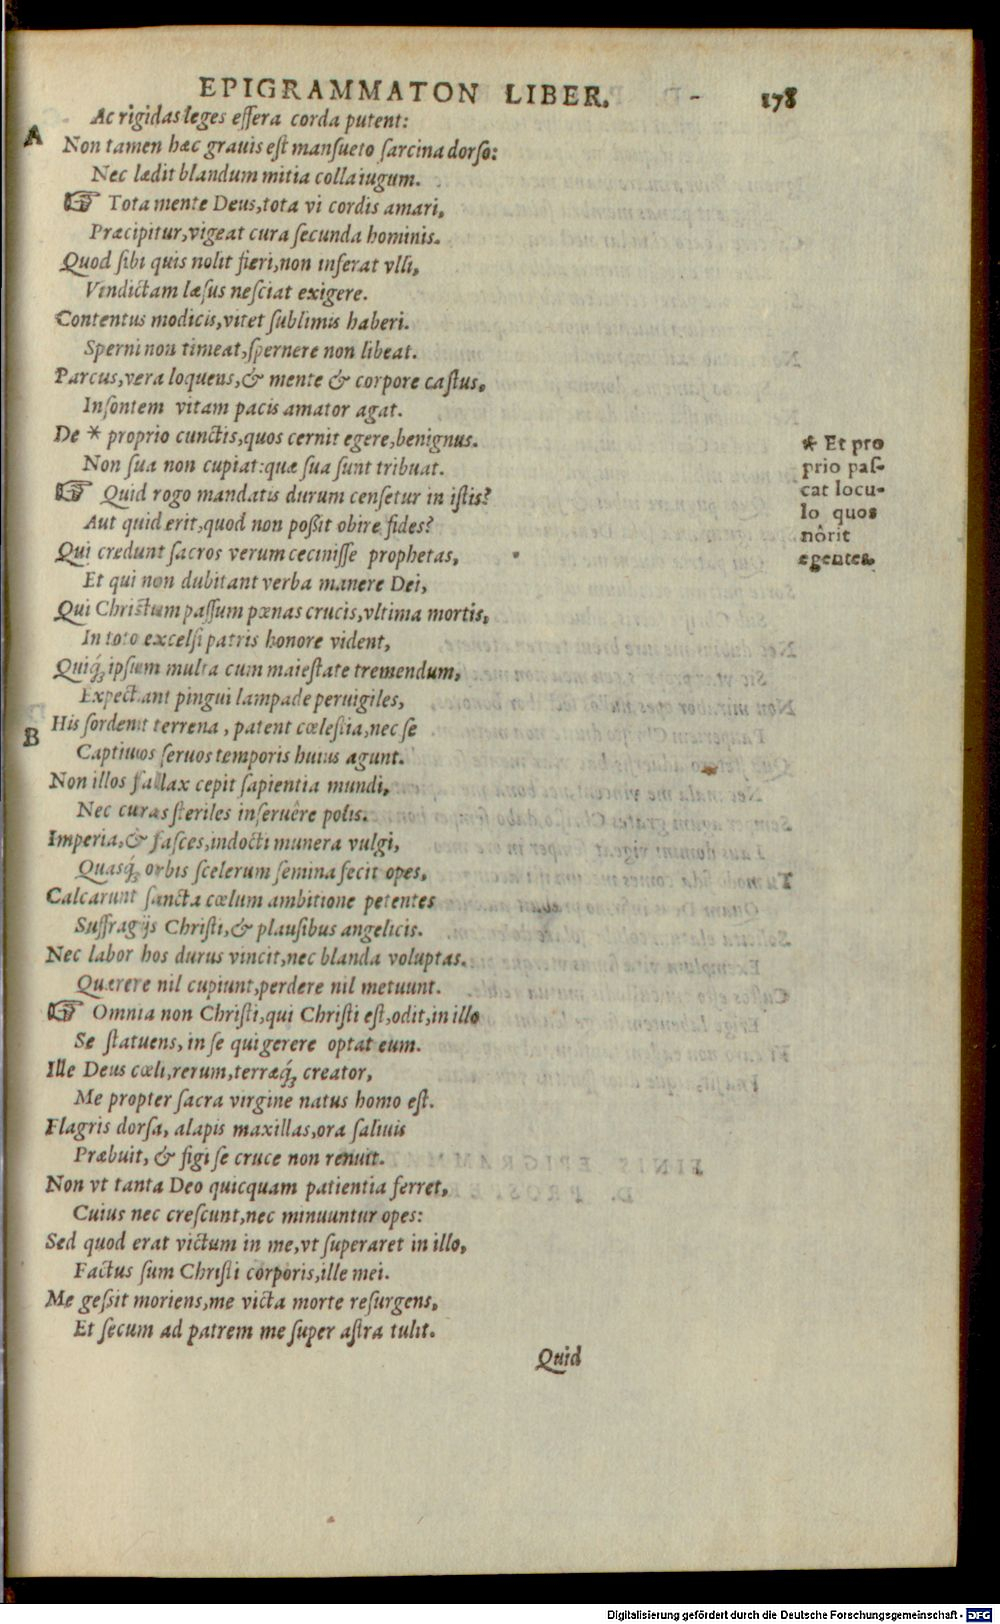 EPIGRAMMATON LIBER. 178
Ac rigidas leges eſſera corda putent:
A
Non tamen hæc grauis eſt manſueto ſarcina dorſo:
Nec lædit blandum mitia colla iugum.
☞ Tota mente Deus, tota vi cordis amari,
Præcipitur, vigeat cura ſecunda hominis.
Quod ſibi quis nolit fieri, non inferat vlli,
Vindictam læſus neſciat exigere.
Contentus modicis, vitet ſublimis haberi.
Sperni non timeat, ſpernere non libeat.
Parcus, vera loquens, & mente & corpore caſtus,
Inſontem vitam pacis amator agat.
De * proprio cunctis, quos cernit egere, benignus.
Non ſua non cupiat: quæ ſua ſunt tribuat.
* Et pro
prio paſ-
cat locu-
lo quos
nôrit
egentes.
☞ Quid rogo mandatis durum cenſetur in iſtis?
Aut quid erit, quod non poſsit obire fides?
Qui credunt ſacros verum ceciniſſe prophetas,
Et qui non dubitant verba manere Dei,
Qui Chriſtum paſſum pœnas crucis, vltima mortis,
In toto excelſi patris honore vident,
Quiq́; ipſum multa cum maieſtate tremendum,
Expectant pingui lampade peruigiles,
His ſordent terrena, patent cœleſtia, nec ſe
B
Captiuos ſeruos temporis huius agunt.
Non illos fallax cepit ſapientia mundi,
Nec curas ſteriles inſeruêre polis.
Imperia, & faſces, indocti munera vulgi,
Quasq́; orbis ſcelerum ſemina fecit opes,
Calcarunt ſancta cœlum ambitione petentes
Suffragijs Chriſti, & plauſibus angelicis.
Nec labor hos durus vincit, nec blanda voluptas.
Quærere nil cupiunt, perdere nil metuunt.
☞ Omnia non Chriſti, qui Chriſti eſt, odit, in illo
Se ſtatuens, in ſe qui gerere optat eum.
Ille Deus cœli, rerum, terræq́; creator,
Me propter ſacra virgine natus homo eſt.
Flagris dorſa, alapis maxillas, ora ſaliuis
Præbuit, & figi ſe cruce non renuit.
Non vt tanta Deo quicquam patientia ferret,
Cuius nec creſcunt, nec minuuntur opes:
Sed quod erat victum in me, vt ſuperaret in illo,
Factus ſum Chriſti corporis, ille mei.
Me geſsit moriens, me victa morte reſurgens,
Et ſecum ad patrem me ſuper aſtra tulit.
Quid
Digitalisierung gefördert durch die Deutsche Forschungsgemeinschaft - DFG